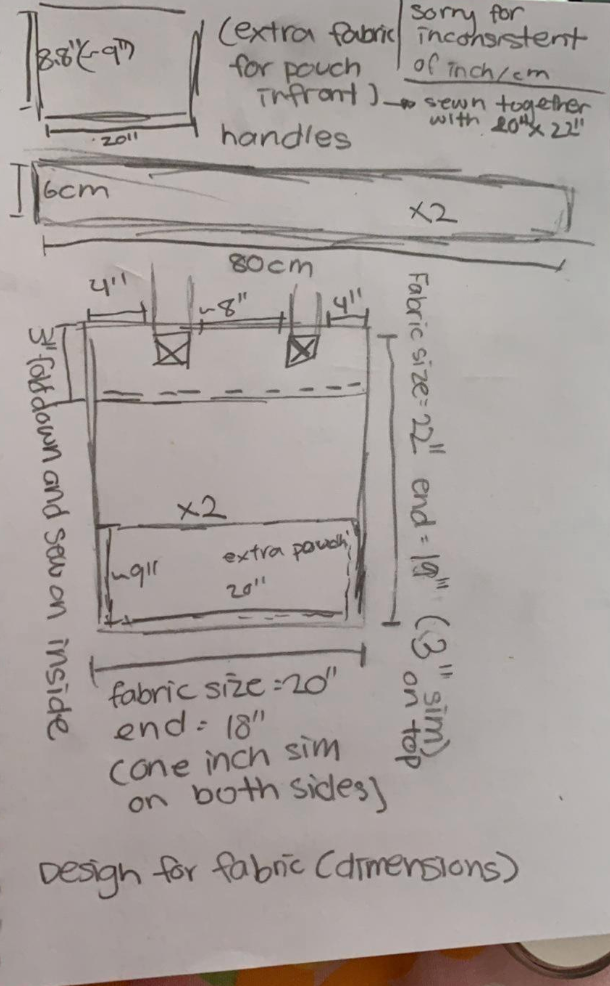 8.8"(~9")
20"
(extra fabric
for pouch
infront) → sewn together
with 20" x 22"
sorry for
inconsistent
of inch/cm
handles
6cm
x2
80cm
4"
~8"
4"
3" fold down and sew on inside
Fabric size = 22" end = 19" (3" sim)
on top
x2
~9"
extra pouch
20"
fabric size = 20"
end = 18"
(one inch sim
on both sides)
Design for fabric (dimensions)